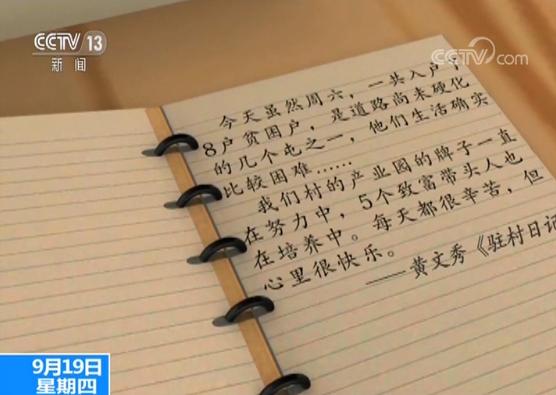 CCTV 13
新闻
CCTV.com
今天虽然周六，一共入户了
8户贫困户，是道路尚未硬化
的几个屯之一，他们生活确实
比较困难……
我们村的产业园的牌子一直
在努力中，5个致富带头人也
在培养中。每天都很辛苦，但
心里很快乐。
——黄文秀《驻村日记
9月19日
星期四